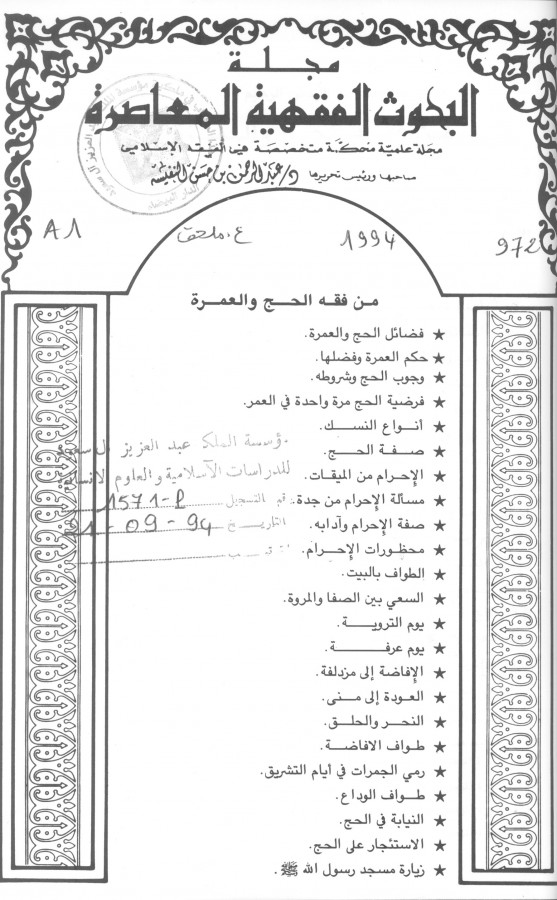 مجلة
البحوث الفقهية المعاصرة
مجلة علمية محكمة متخصصة في الفقه الإسلامي
صاحبها ورئيس تحريرها د/عبدالرحمن بن حسن النفيسه
A1 ع.ملحق 1994 972
من فقه الحج والعمرة
★ فضائل الحج والعمرة.
★ حكم العمرة وفضلها.
★ وجوب الحج وشروطه.
★ فرضية الحج مرة واحدة في العمر.
★ أنواع النسك.
★ صفة الحج.
★ الإحرام من الميقات.
★ مسألة الإحرام من جدة.
★ صفة الإحرام وآدابه.
★ محظورات الإحرام.
★ الطواف بالبيت.
★ السعي بين الصفا والمروة.
★ يوم التروية.
★ يوم عرفة.
★ الإفاضة إلى مزدلفة.
★ العودة إلى منى.
★ النحر والحلق.
★ طواف الافاضة.
★ رمي الجمرات في أيام التشريق.
★ طواف الوداع.
★ النيابة في الحج.
★ الاستئجار على الحج.
★ زيارة مسجد رسول الله ﷺ.
مؤسسة الملك عبد العزيز آل سعود
للدراسات الآسلامية والعلوم الانسانية
رقم التسجيل 1571-P
التاريخ 21-09-94